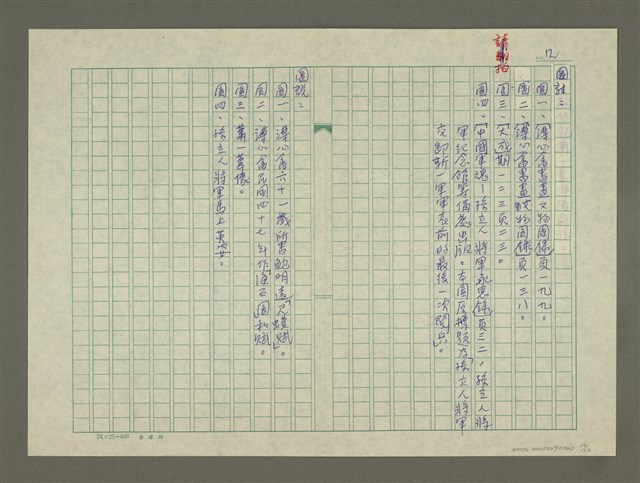 12
圖註:
圖一、〔溥心畬書畫文物圖錄〕頁一九九。
圖二、〔溥心畬書畫文物圖錄〕頁一三八。
圖三、〔大成〕期一二三頁二三。
圖四、〔中國軍魂—孫立人將軍永思錄〕頁三二,孫立人將
軍紀念館籌備處出版。本圖原標題為「孫立人將軍
交卸新一軍軍長前的最後一次閱兵」。
圖說:
圖一、溥心畬六十一歲所書鮑明遠「尺蠖賦」。
圖二、溥心畬民國四十七年作「漁石圖和賦」。
圖三、葉一葦像。
圖四、孫立人將軍馬上英姿。
24×25=600